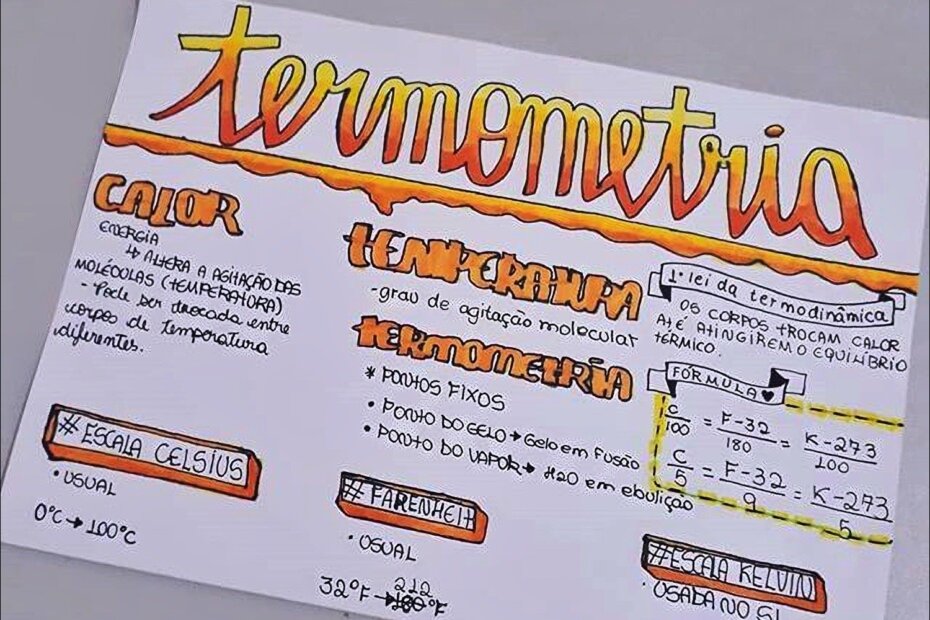 termometria
CALOR
ENERGIA
↳ ALTERA A AGITAÇÃO DAS
MOLÉCULAS (TEMPERATURA)
- Pode ser trocada entre
corpos de temperatura
diferentes.
TEMPERATURA
-grau de agitação molecular
TERMOMETRIA
* PONTOS FIXOS
• PONTO DO GELO → Gelo em fusão
• PONTO DO VAPOR → H2O em ebulição
1ª lei da termodinâmica
OS CORPOS TROCAM CALOR
ATÉ ATINGIREM O EQUILÍBRIO
TÉRMICO.
FÓRMULA ♥
C/100 = F-32/180 = K-273/100
C/5 = F-32/9 = K-273/5
# ESCALA CELSIUS
• USUAL
0°C → 100°C
# FARENHEIT
• USUAL
212
32°F → °F
#ESCALA KELVIN
• USADA NO SI